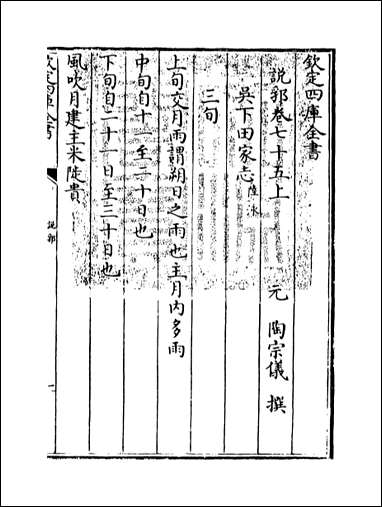 欽定四庫全書
說郛卷七十五上
元 陶宗儀 撰
吳下田家志 陸泳
三旬
上旬交月雨謂朔日之雨也主月内多雨
中旬自十一至二十日也
下旬自二十一日至三十日也
風吹月建主米陡貴
欽定四庫全書
說郛
一